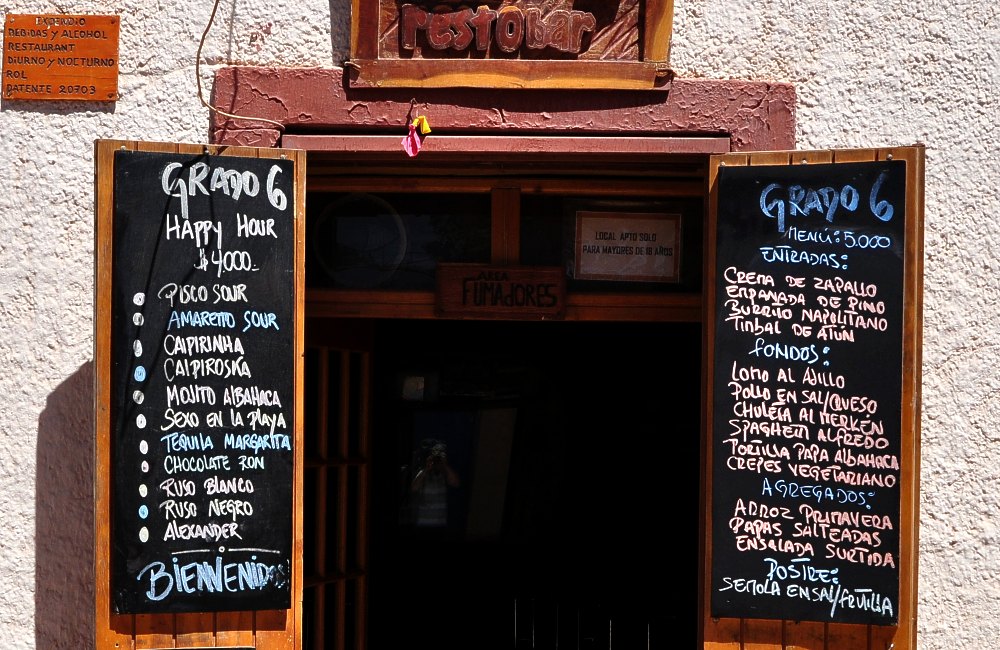 EXPENDIO
BEBIDAS Y ALCOHOL
RESTAURANT
DIURNO y NOCTURNO
ROL
PATENTE 20703
restobar
GRADO 6
HAPPY HOUR
$4000.-
PISCO SOUR
AMARETTO SOUR
CAIPIRINHA
CAIPIROSKA
MOJITO ALBAHACA
SEXO EN LA PLAYA
TEQUILA MARGARITA
CHOCOLATE RON
RUSO BLANCO
RUSO NEGRO
ALEXANDER
BIENVENIDOS
LOCAL APTO SOLO
PARA MAYORES DE 18 AÑOS
AREA
FUMADORES
GRADO 6
MENÚ: 5.000
ENTRADAS:
CREMA DE ZAPALLO
EMPANADA DE PINO
BURRITO NAPOLITANO
TIMBAL DE ATÚN
FONDOS:
LOMO AL AJILLO
POLLO EN SAL/QUESO
CHULETA AL MERKÉN
SPAGHETTI ALFREDO
TORTILLA PAPA ALBAHACA
CREPES VEGETARIANO
AGREGADOS:
ARROZ PRIMAVERA
PAPAS SALTEADAS
ENSALADA SURTIDA
POSTRE:
SEMOLA EN SAL/FRUTILLA